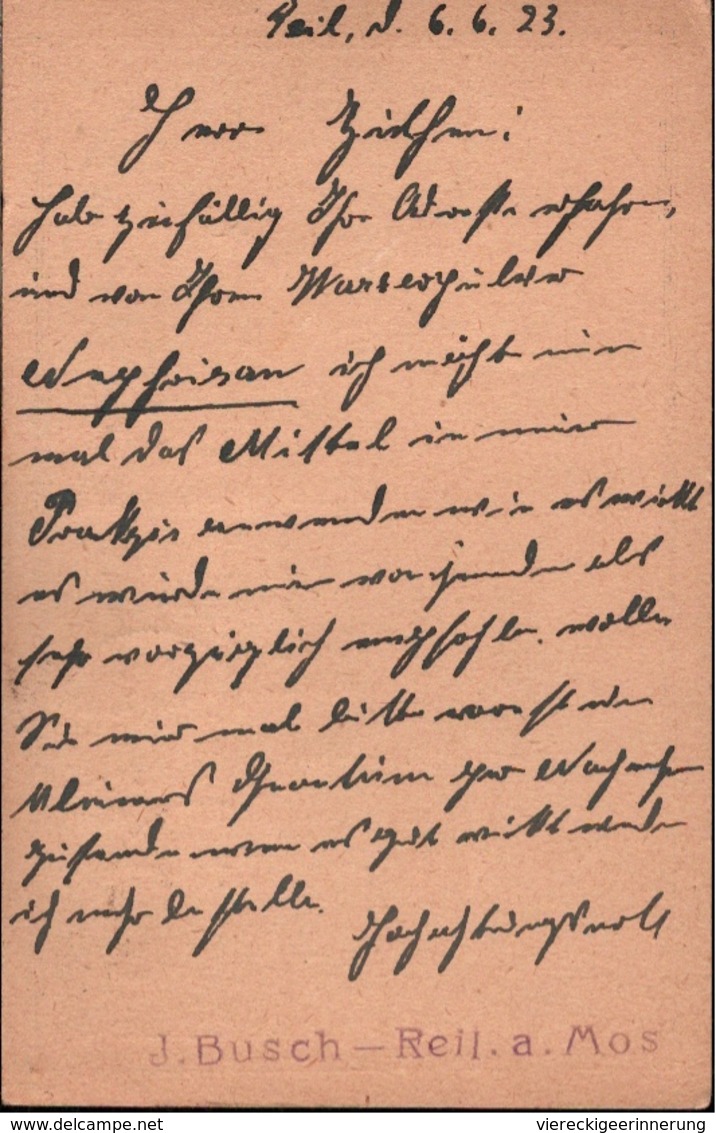 Reil, d. 6. 6. 23.
Herr Zilchen!
Habe zufällig Ihre Adresse erfahren,
und von Ihrem
Nephrisan ich möchte nun
mal das Mittel in meiner
Praxis anwenden wie es wirkt
es wurde mir von jemanden als
sehr vorzüglich empfohlen. wollen
Sie mir mal bitte vorerst ein
kleineres Quantum per Nachnahme
zusenden wenn es gut wirkt werde
ich mehr bestellen.
Hochachtungsvoll
J. Busch – Reil. a. Mos
www.delcampe.net
viereckigeerinnerung